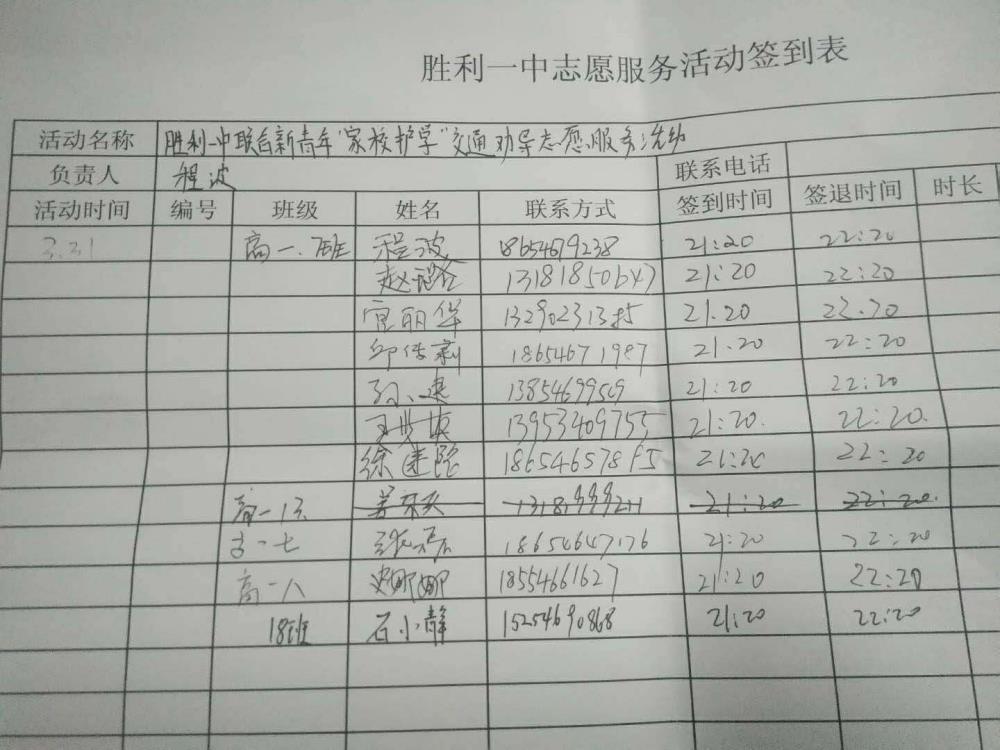 胜利一中志愿服务活动签到表
活动名称 胜利一中联合新青年“家校护学”交通劝导志愿服务活动
负责人 程波 联系电话
活动时间 编号 班级 姓名 联系方式 签到时间 签退时间 时长
3.31 高一.7班 程波 18654679238 21:20 22:20
13181850647 21:20 22:20
宫丽华 21.20 22.20
18654671987 21.20 22:20
孙建 1385469959 21:20 22:20
13953409755 21:20 22:20.
徐建路 22:20
高一13 21:20 22:20.
高一七 18654647176 21:20 22:20
高一八 史娜娜 18554661627 21:20 22:20
18班 石小静 15254690868 21:20 22:20